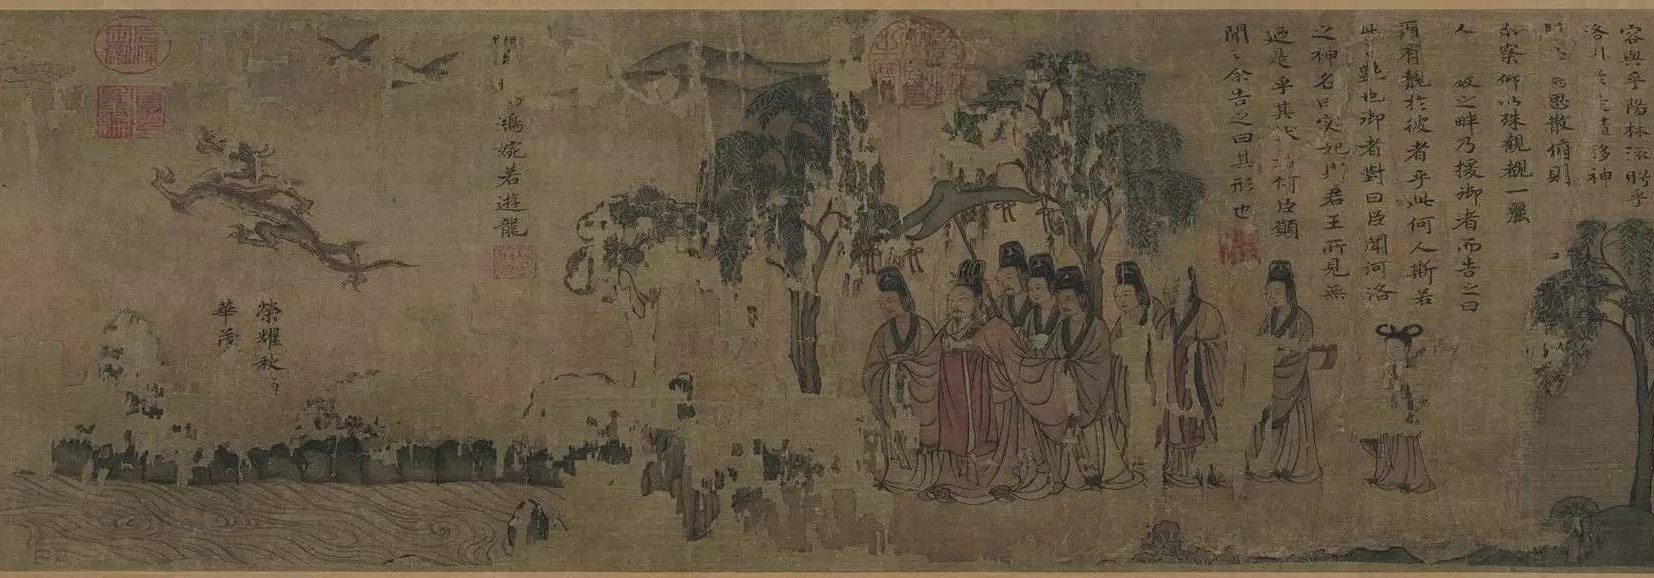 容與乎陽林流眄乎
洛川於是 移神
思散俯則
未察仰以殊觀覩一麗
人 之畔乃援御者而告之曰
爾有覿於彼者乎此何人斯若
此 艷也御者對曰臣聞河洛
之神名曰宓妃 君王所見無
迺是乎其狀 何臣願
聞之余告之曰其形也
鴻婉若遊龍
榮耀秋
華茂